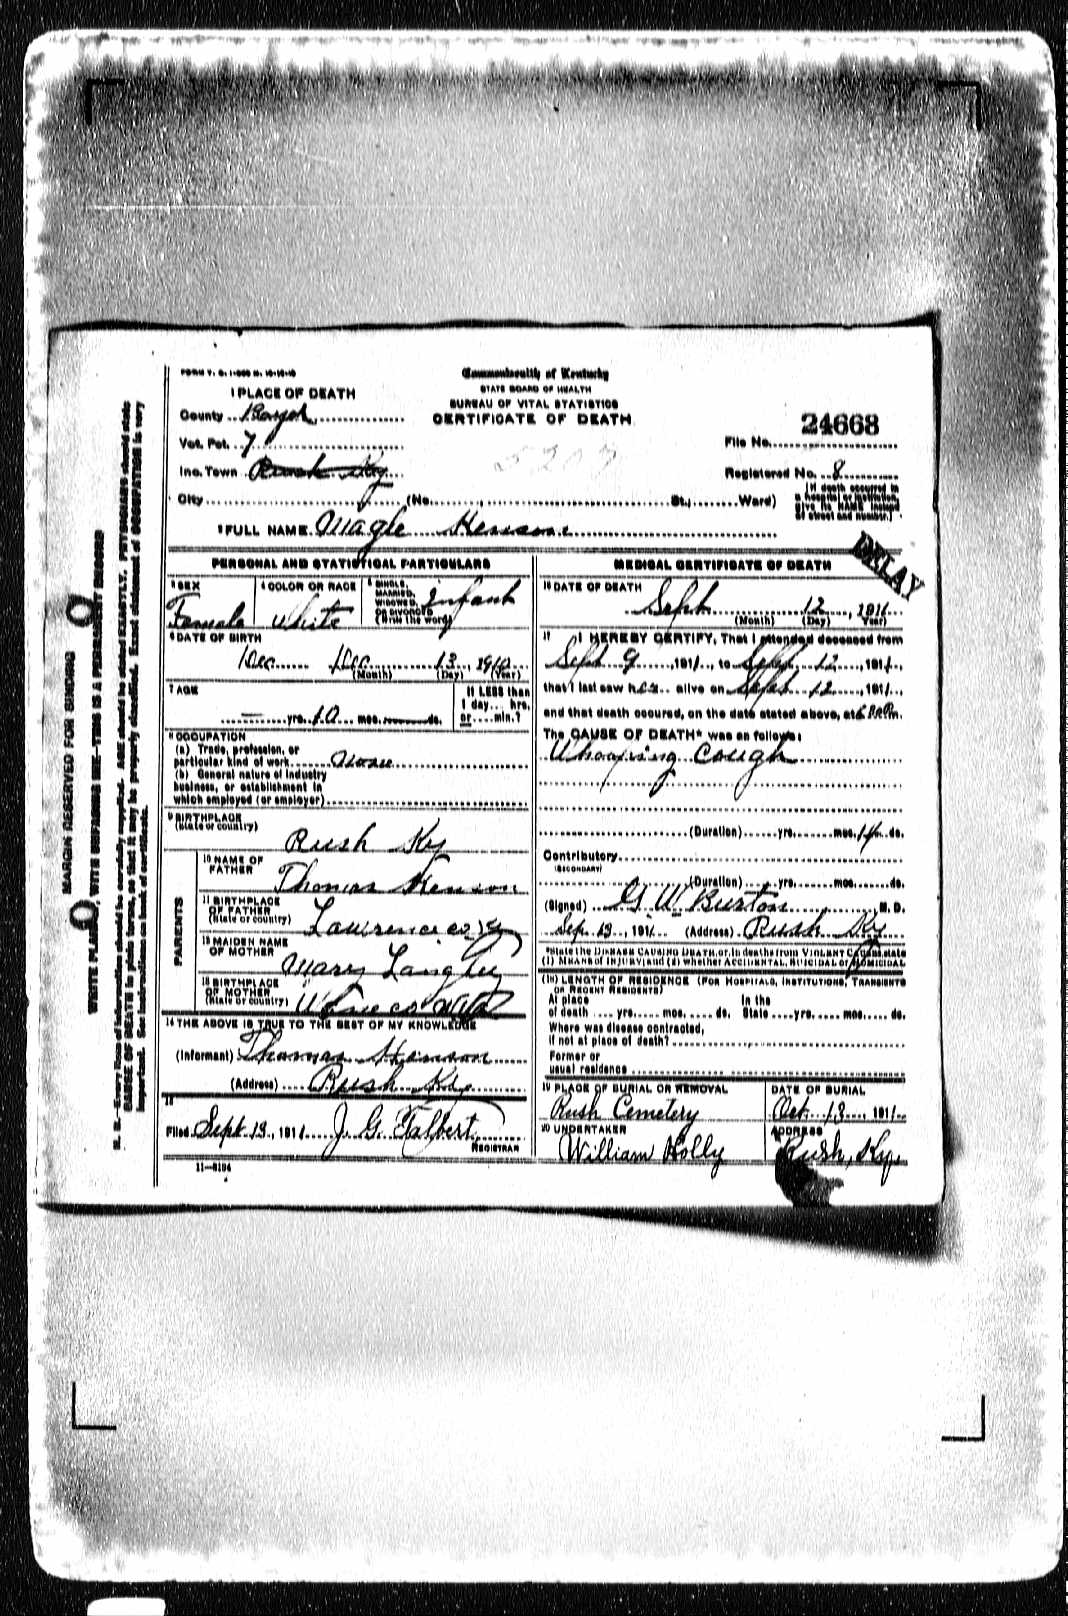 FORM V. S. 1-
Commonwealth of Kentucky
STATE BOARD OF HEALTH
BUREAU OF VITAL STATISTICS
CERTIFICATE OF DEATH
1 PLACE OF DEATH
County Boyd
Vot. Pct. 7
Inc. Town Rush Ky
City (No. St.; Ward)
5207
24668
File No.
Registered No. 8
[If death occurred in
a hospital or institution,
give its NAME instead
of street and number.]
2 FULL NAME Magle Henson
DELAY
PERSONAL AND STATISTICAL PARTICULARS
3 SEX
Female
4 COLOR OR RACE
White
5 SINGLE,
MARRIED,
WIDOWED,
OR DIVORCED
(Write the word)
Infant
6 DATE OF BIRTH
Dec Dec 13, 1910
(Month) (Day) (Year)
7 AGE
— yrs. 10 mos. ds.
If LESS than
1 day... hrs.
or....min.?
8 OCCUPATION
(a) Trade, profession, or
particular kind of work None
(b) General nature of industry
business, or establishment in
which employed (or employer)
9 BIRTHPLACE
(State or country)
Rush Ky
PARENTS
10 NAME OF
FATHER
Thomas Henson
11 BIRTHPLACE
OF FATHER
(State or country)
Lawrence co Ky
12 MAIDEN NAME
OF MOTHER
Mary Langley
13 BIRTHPLACE
OF MOTHER
(State or country)
co
14 THE ABOVE IS TRUE TO THE BEST OF MY KNOWLEDGE
(Informant) Thomas Henson
(Address) Rush Ky
15
Filed Sept 13, 1911 J. G. Talbert
REGISTRAR
11—3184
MEDICAL CERTIFICATE OF DEATH
16 DATE OF DEATH
Sept 12, 1911
(Month) (Day) (Year)
17 I HEREBY CERTIFY, That I attended deceased from
Sept 9, 1911, to Sept 12, 1911,
that I last saw her alive on Sept 12, 1911,
and that death occured, on the date stated above, at m.
The CAUSE OF DEATH* was as follows:
Whooping Cough
(Duration) yrs. mos. 14 ds.
Contributory
(SECONDARY)
(Duration) yrs. mos. ds.
(Signed) G W Burton M. D.
Sep. 13, 1911 (Address) Rush Ky
*State the DISEASE CAUSING DEATH, or, in deaths from VIOLENT CAUSES, state
(1) MEANS OF INJURY; and (2) whether ACCIDENTAL, SUICIDAL or HOMICIDAL
(18) LENGTH OF RESIDENCE (FOR HOSPITALS, INSTITUTIONS, TRANSIENTS
OR RECENT RESIDENTS)
At place In the
of death yrs. mos. ds. State yrs. mos. ds.
Where was disease contracted,
if not at place of death?
Former or
usual residence
19 PLACE OF BURIAL OR REMOVAL
Rush Cemetery
DATE OF BURIAL
Oct. 13, 1911
20 UNDERTAKER
William Holly
ADDRESS
Rush, Ky.
MARGIN RESERVED FOR BINDING
WRITE PLAINLY, WITH UNFADING INK—THIS IS A PERMANENT RECORD
N. B.—Every item of information should be carefully supplied. AGE should be stated EXACTLY. PHYSICIANS should state
CAUSE OF DEATH in plain terms, so that it may be properly classified. Exact statement of OCCUPATION is very
important. See instructions on back of certificate.